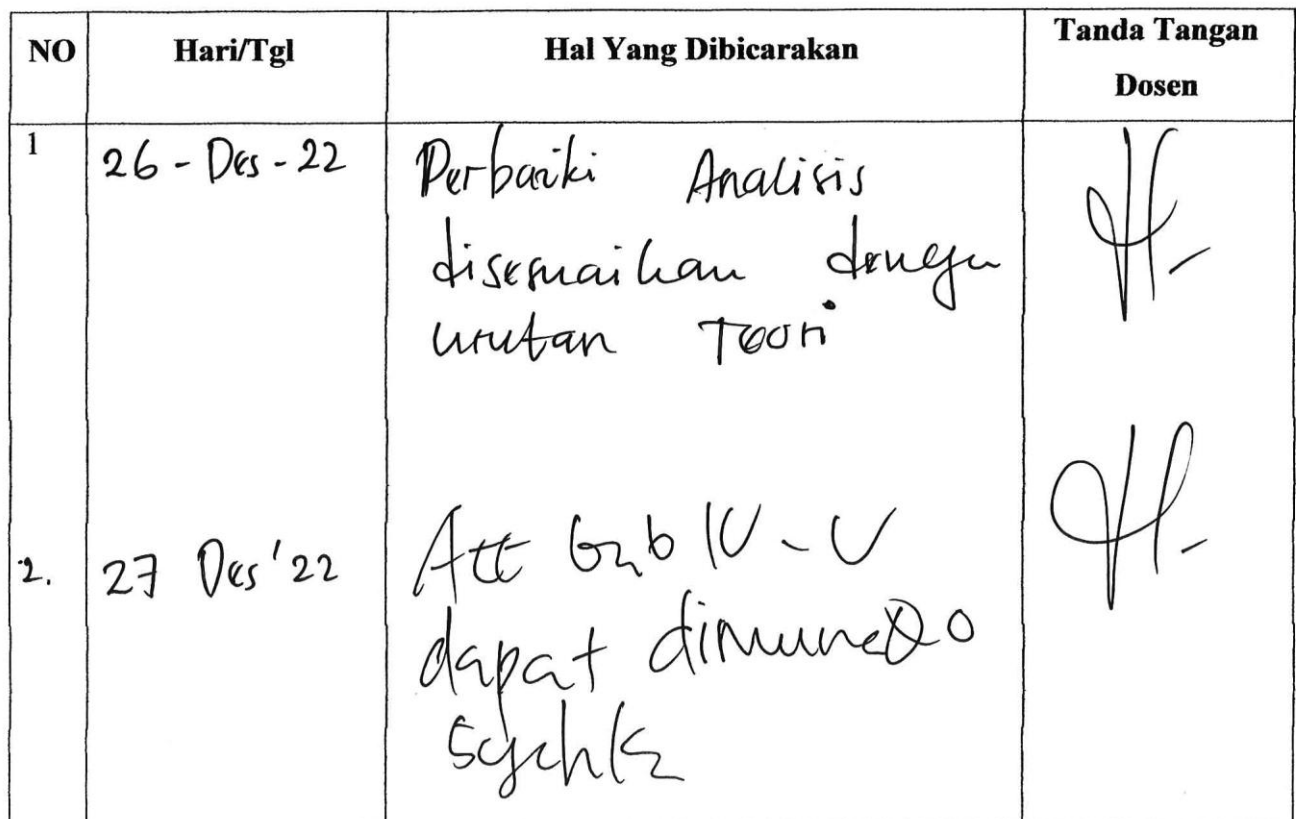 NO Hari/Tgl Hal Yang Dibicarakan Tanda Tangan
Dosen
1 26 - Des - 22 Perbaiki Analisis
disesuaikan dengan
urutan Teori
2. 27 Des '22 Acc bab IV - V
dapat